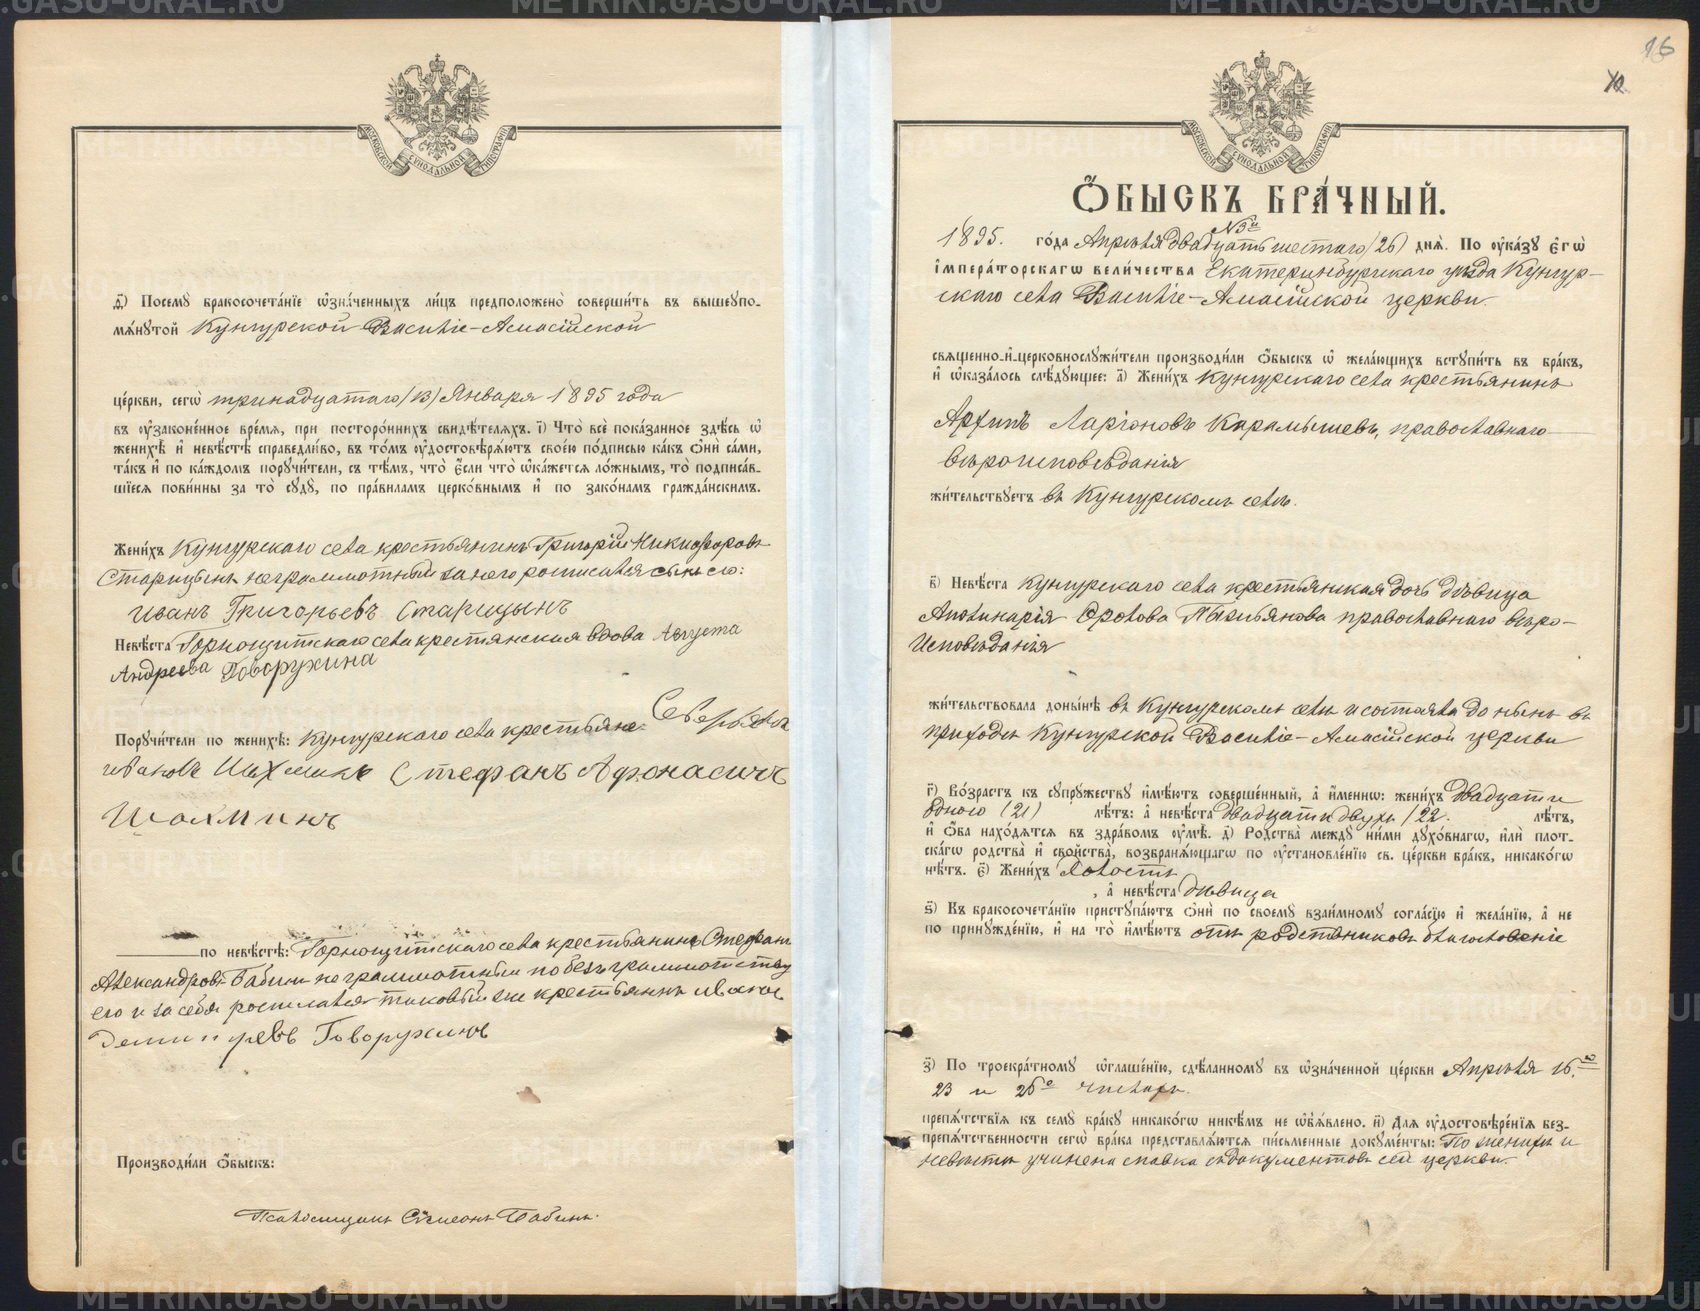 МОСКОВСКОЙ СУНОДАЛЬНОЙ ТИПОГРАФІИ
д҃) Посемꙋ бракосочета́нїе ѡ҆зна́ченныхъ ли́цъ предположено̀ соверши́ть въ вышеупо-
мѧ́нꙋтой Кунгурской Василіе-Амасійской
це́ркви, сегѡ̀ тринадцатаго (13) Января 1895 года
въ оу҆зако́не́нное вре́мѧ, при посторо́ннихъ свидѣ́телѧхъ. і҃) Что̀ всѐ пока́занное здѣ́сь ѡ҆
женихѣ̀ и҆ невѣ́стѣ справедли́во, въ то́мъ оу҆достовѣрѧ́ютъ свое́ю по́дписью ка́къ ѻ҆нѝ са́ми,
та́къ и҆ по ка́ждомъ порꙋчи́тели, съ тѣ́мъ, что̀ є҆́сли что̀ ѡ҆ка́жетсѧ ло́жнымъ, то̀ подписа́в-
шїесѧ пови́нны за то̀ сꙋдꙋ̀, по пра́виламъ церко́внымъ и҆ по зако́намъ гражда́нскимъ.
Жени́хъ Кунгурскаго села крестьянинъ Григорій Никифоровъ
Старицынъ неграмотный за него росписался сынъ его:
Иванъ Григорьевъ Старицынъ
Невѣ́ста Горнощитскаго села крестянская вдова Августа
Андреева Говорухина
Порꙋчи́тели по женихѣ̀: Кунгурскаго села крестьяне
Ивановъ Шахминъ Стефанъ Афонасичъ
Шахминъ
по невѣ́стѣ: Горнощитскаго села крестьянинъ Стефанъ
Александровъ Бабинъ неграмотный по безъграмотству
его и за себя росписался таковый же крестьянинъ Иванъ
Говорухинъ
Производи́ли ѻ҆́быскъ:
Псаломщикъ Симеонъ Бабинъ.
16
МОСКОВСКОЙ СУНОДАЛЬНОЙ ТИПОГРАФІИ
Ѻ҆́БЫСКЪ БРА́ЧНЫЙ.
1895. го́да Апрѣля двадцать шестаго (26) днѧ̀. По оу҆ка́зꙋ є҆гѡ̀
і҆мпера́торскагѡ вели́чества Екатеринбургскаго уѣзда Кунгур-
скаго села Василіе-Амасійской церкви
свѧщенно-и҆-церковнослꙋжи́тели производи́ли ѻ҆́быскъ ѡ҆ жела́ющихъ встꙋпи́ть въ бра́къ,
и҆ ѡ҆каза́лось слѣ́дꙋющее: а҃) Жени́хъ Кунгурскаго села крестьянинъ
Архипъ Ларіоновъ Карамышевъ, православнаго
вѣроисповѣданія
жи́тельствꙋетъ въ Кунгурскомъ селѣ.
в҃) Невѣ́ста Кунгурскаго села крестьянская дочь дѣвица
Аполинарія Фролова Пызьянова православнаго вѣро-
исповѣданія
жи́тельствовала доны́нѣ въ Кунгурскомъ селѣ и состояла до нынѣ въ
приходѣ Кунгурской Василіе-Амасійской церкви
г҃) Во́зрастъ къ сꙋпрꙋ́жествꙋ и҆мѣ́ютъ соверше́нный, а҆ и҆́меннѡ: жени́хъ двадцати
одного (21) лѣ́тъ: а҆ невѣ́ста двадцати двухъ (22. лѣ́тъ,
и҆ ѻ҆́ба нахо́дѧтсѧ въ здра́вомъ оу҆мѣ̀. д҃) Ро́дства междꙋ̀ ни́ми дꙋхо́внагѡ, и҆лѝ плот-
ска́гѡ родства̀ и҆ сво́йства̀, возбранѧ́ющагѡ по оу҆становле́нїю св. це́ркви бра́къ, никако́гѡ
нѣ́тъ. є҃) Жени́хъ холостъ
, а҆ невѣ́ста дѣвица
ѕ҃) Къ бракосочета́нїю пристꙋпа́ютъ ѻ҆нѝ по своемꙋ̀ взаи́мномꙋ согла́сїю и҆ жела́нїю, а҆ не
по принꙋжде́нїю, и҆ на то̀ и҆мѣ́ютъ отъ родственниковъ благословеніе
з҃) По троекра́тномꙋ ѡ҆глаше́нїю, сдѣ́ланномꙋ въ ѡ҆зна́ченной це́ркви Апрѣля 16го
23 и 26го чиселъ.
препѧ́тствїѧ къ семꙋ̀ бра́кꙋ никако́гѡ никѣ́мъ не ѡ҆б̾ѧ́влено. и҃) Длѧ оу҆достовѣре́нїѧ без-
препѧ́тственности сегѡ̀ бра́ка представлѧ́ютсѧ пи́сьменные докꙋме́нты: По женихѣ и
невѣстѣ учинена справка съ документовъ сей церкви.
METRIKI.GASU-URAL.RU